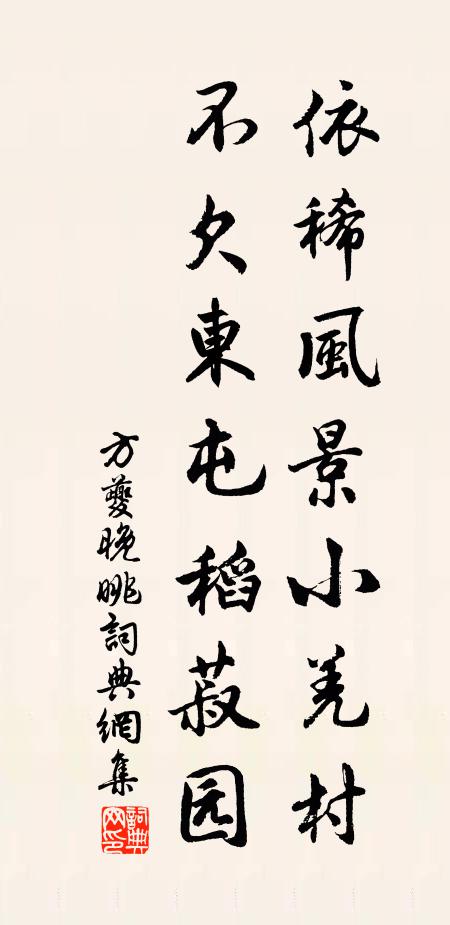 依稀風景小羌村
不欠東屯稻菽园
方夔晚眺詞典網集
詞典網印